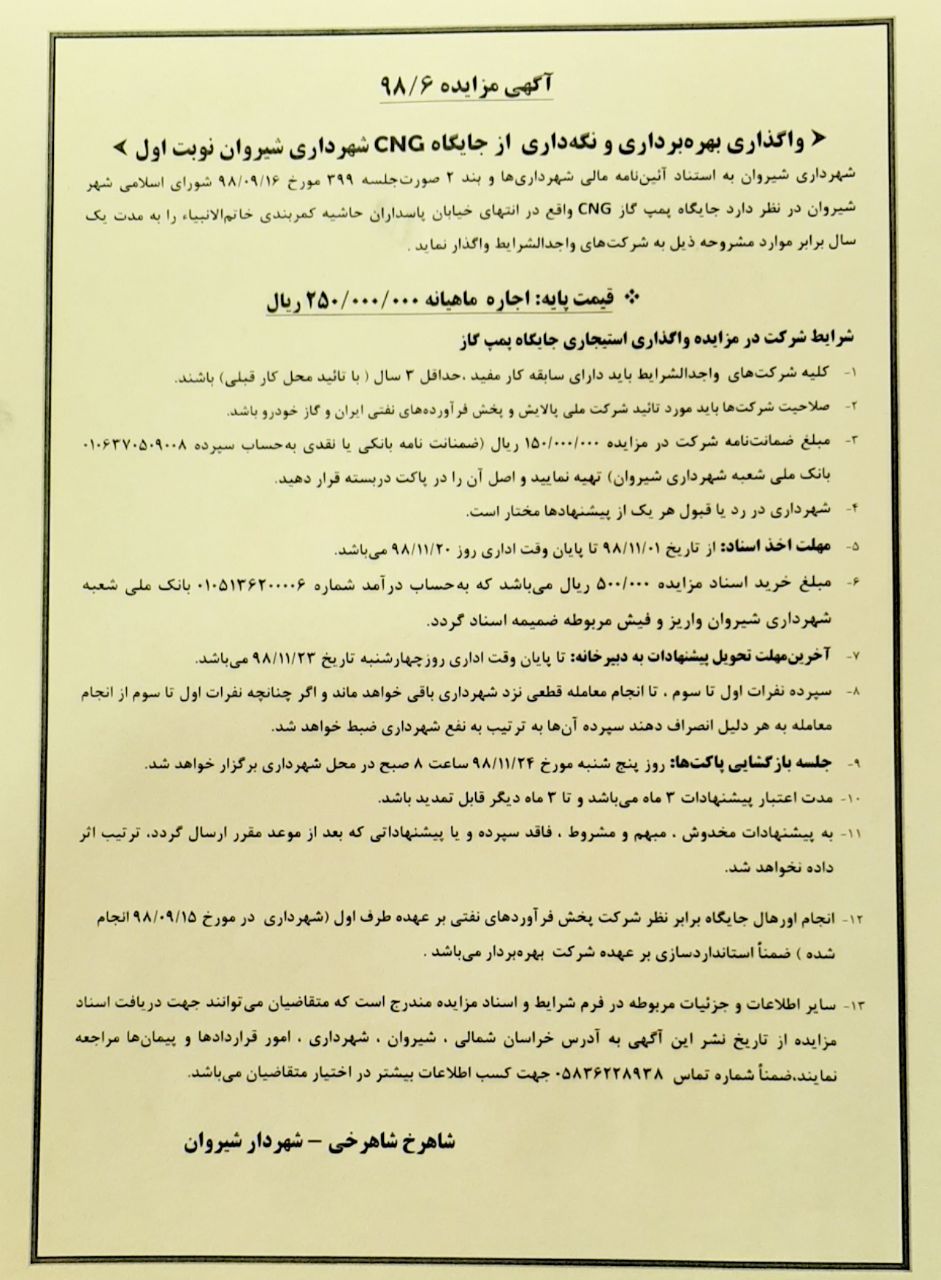 آگهی مزایده ۹۸/۶
➤ واگذاری بهره‌برداری و نگه‌داری از جایگاه CNG شهرداری شیروان نوبت اول ➤
شهرداری شیروان به استناد آئین‌نامه مالی شهرداری‌ها و بند ۲ صورت‌جلسه ۳۹۹ مورخ ۹۸/۰۹/۱۶ شورای اسلامی شهر
شیروان در نظر دارد جایگاه پمپ گاز CNG واقع در انتهای خیابان پاسداران حاشیه کمربندی خاتم‌الانبیاء را به مدت یک
سال برابر موارد مشروحه ذیل به شرکت‌های واجدالشرایط واگذار نماید .
❖ قیمت پایه: اجاره ماهیانه ۲۵۰/۰۰۰/۰۰۰ ریال
شرایط شرکت در مزایده واگذاری استیجاری جایگاه پمپ گاز
۱- کلیه شرکت‌های واجدالشرایط باید دارای سابقه کار مفید ،حداقل ۳ سال ( با تائید محل کار قبلی) باشند.
۲- صلاحیت شرکت‌ها باید مورد تائید شرکت ملی پالایش و پخش فرآورده‌های نفتی ایران و گاز خودرو باشد.
۳- مبلغ ضمانت‌نامه شرکت در مزایده ۱۵۰/۰۰۰/۰۰۰ ریال (ضمنانت نامه بانکی یا نقدی به‌حساب سپرده ۰۱۰۶۳۷۰۵۰۹۰۰۸
بانک ملی شعبه شهرداری شیروان) تهیه نمایید و اصل آن را در پاکت دربسته قرار دهید.
۴- شهرداری در رد یا قبول هر یک از پیشنهادها مختار است.
۵- مهلت اخذ اسناد: از تاریخ ۹۸/۱۱/۰۱ تا پایان وقت اداری روز ۹۸/۱۱/۲۰ می‌باشد.
۶- مبلغ خرید اسناد مزایده ۵۰۰/۰۰۰ ریال می‌باشد که به‌حساب درآمد شماره ۰۱۰۵۱۳۶۲۰۰۰۰۶ بانک ملی شعبه
شهرداری شیروان واریز و فیش مربوطه ضمیمه اسناد گردد.
۷- آخرین‌مهلت تحویل پیشنهادات به دبیرخانه: تا پایان وقت اداری روزچهارشنبه تاریخ ۹۸/۱۱/۲۳ می‌باشد.
۸- سپرده نفرات اول تا سوم ، تا انجام معامله قطعی نزد شهرداری باقی خواهد ماند و اگر چنانچه نفرات اول تا سوم از انجام
معامله به هر دلیل انصراف دهند سپرده آن‌ها به ترتیب به نفع شهرداری ضبط خواهد شد.
۹- جلسه بازگشایی پاکت‌ها: روز پنج شنبه مورخ ۹۸/۱۱/۲۴ ساعت ۸ صبح در محل شهرداری برگزار خواهد شد.
۱۰- مدت اعتبار پیشنهادات ۳ ماه می‌باشد و تا ۳ ماه دیگر قابل تمدید باشد.
۱۱- به پیشنهادات مخدوش ، مبهم و مشروط ، فاقد سپرده و یا پیشنهاداتی که بعد از موعد مقرر ارسال گردد، ترتیب اثر
داده نخواهد شد.
۱۲- انجام اورهال جایگاه برابر نظر شرکت پخش فرآوردهای نفتی بر عهده طرف اول (شهرداری در مورخ ۹۸/۰۹/۱۵ انجام
شده ) ضمناً استانداردسازی بر عهده شرکت بهره‌بردار می‌باشد .
۱۳- سایر اطلاعات و جزئیات مربوطه در فرم شرایط و اسناد مزایده مندرج است که متقاضیان می‌توانند جهت دریافت اسناد
مزایده از تاریخ نشر این آگهی به آدرس خراسان شمالی ، شیروان ، شهرداری ، امور قراردادها و پیمان‌ها مراجعه
نمایند،ضمناً شماره تماس ۰۵۸۳۶۲۲۸۹۳۸ جهت کسب اطلاعات بیشتر در اختیار متقاضیان می‌باشد.
شاهرخ شاهرخی – شهردار شیروان